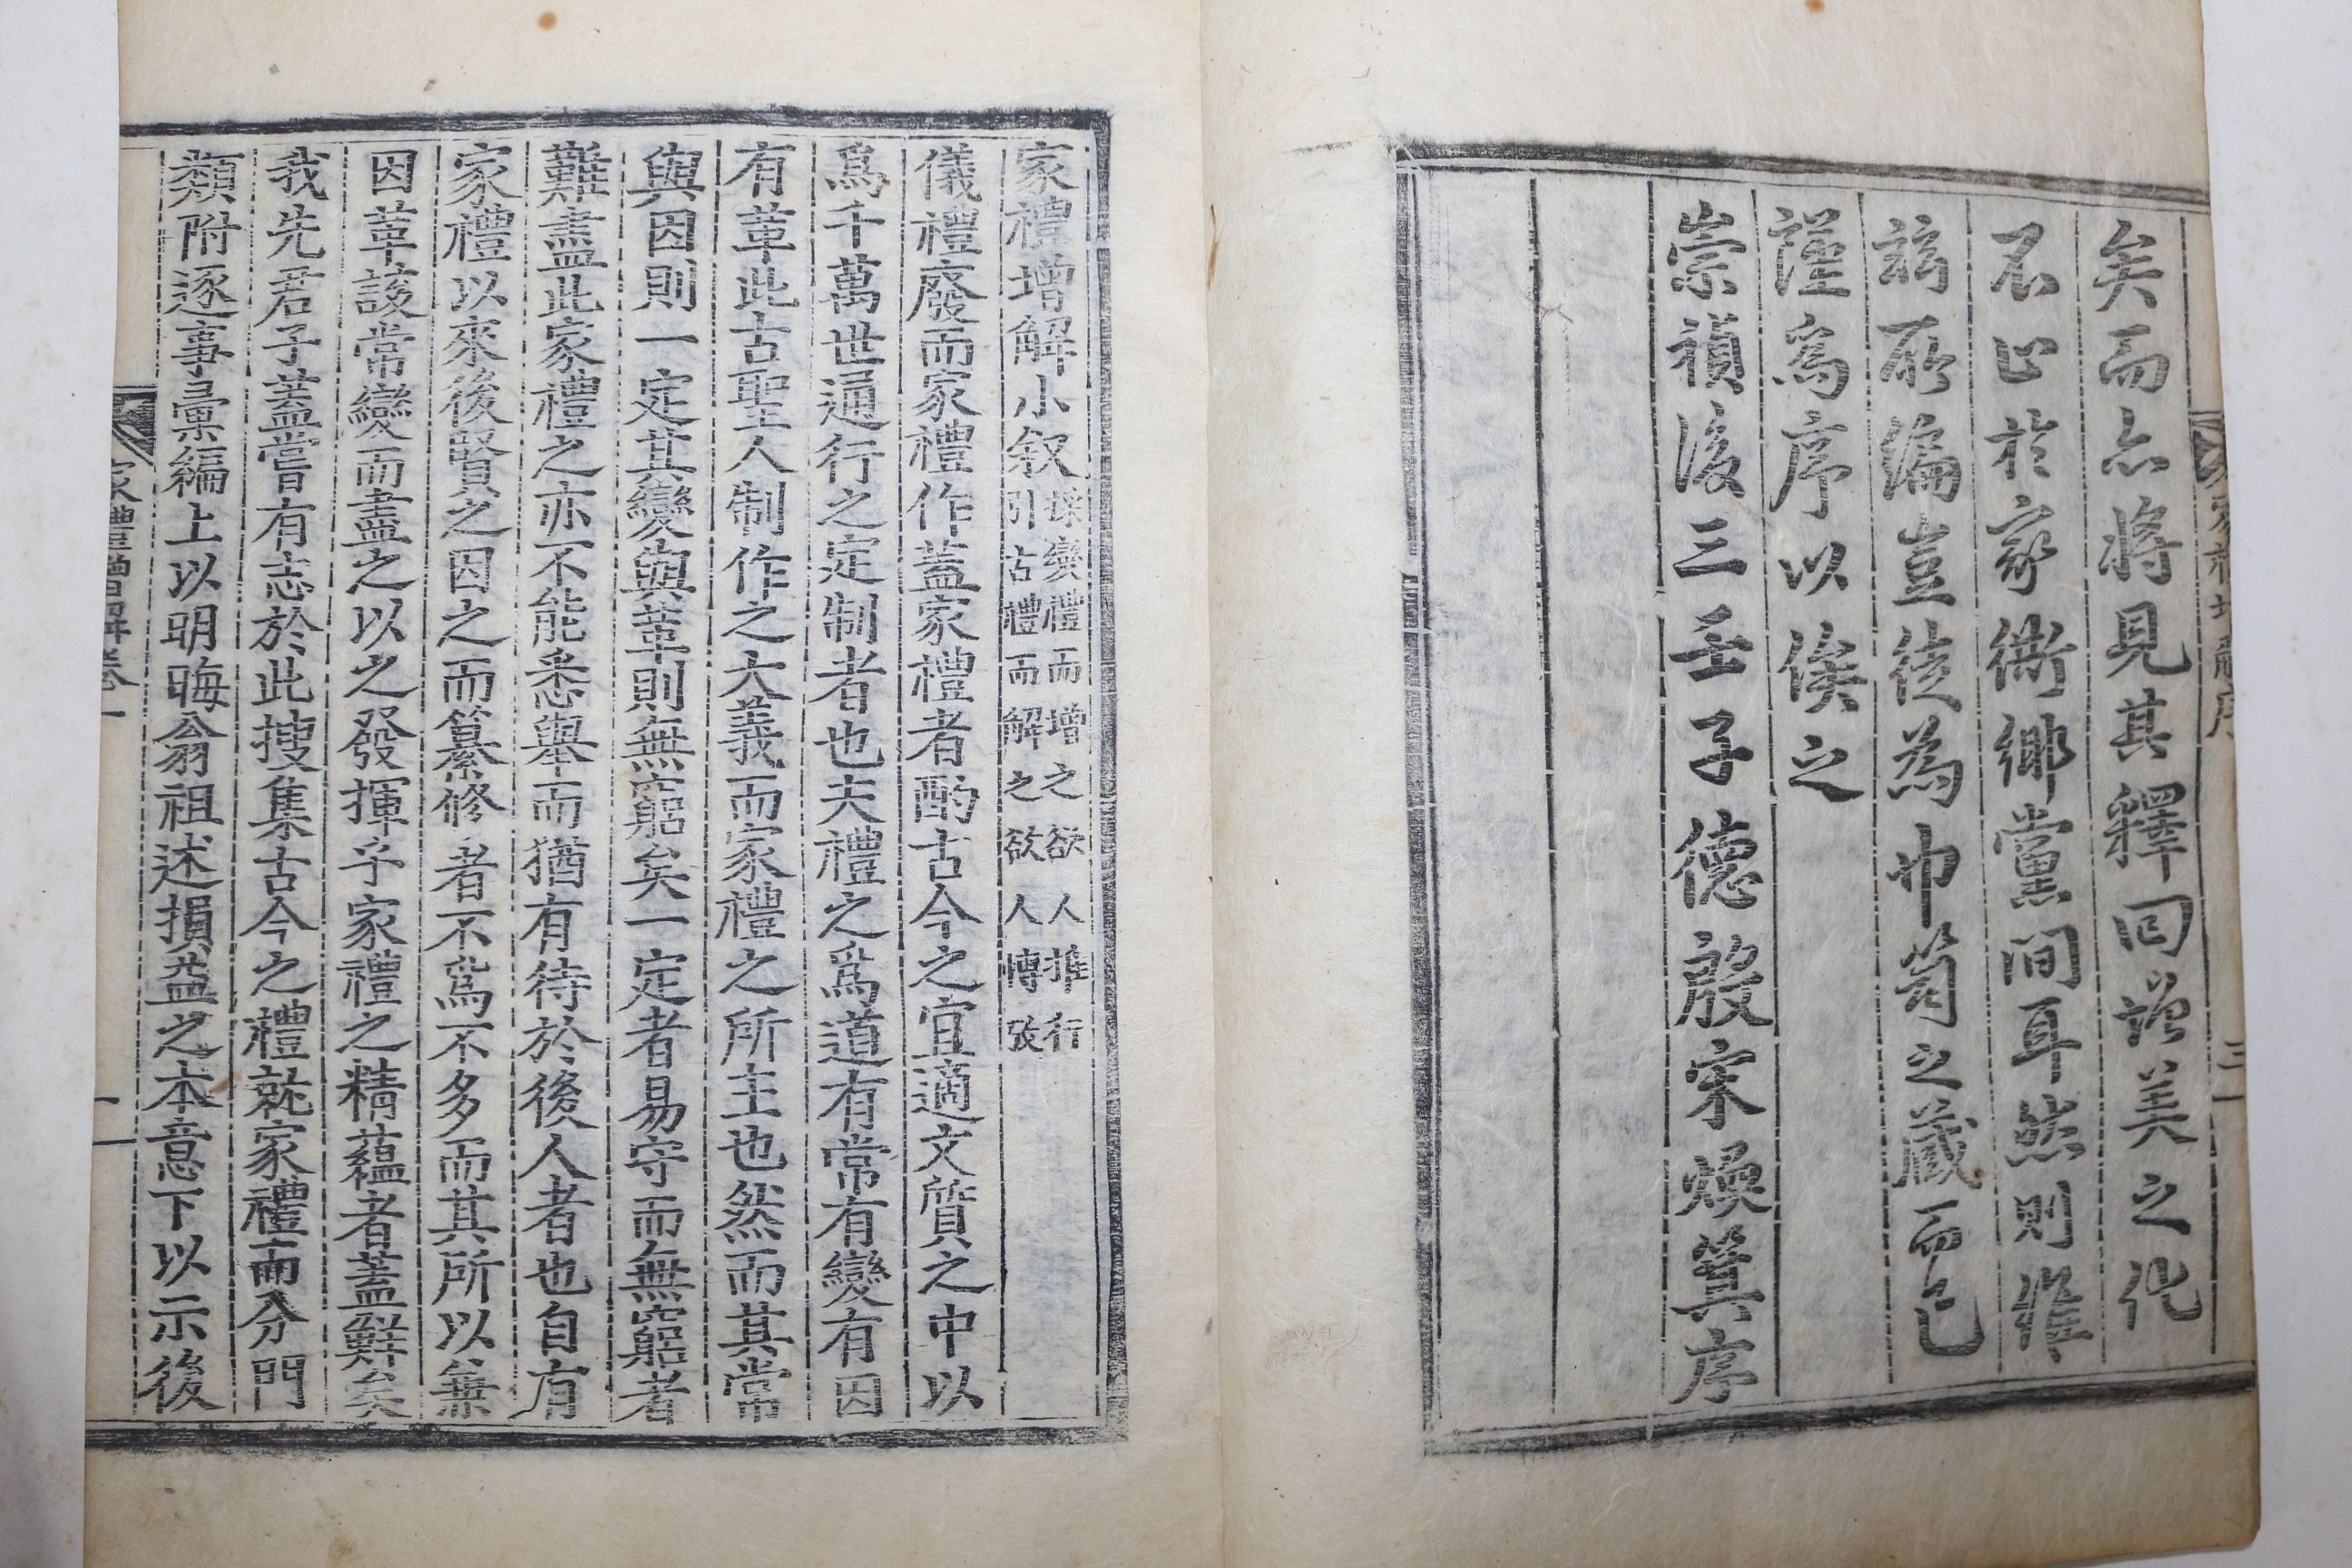 矣而亦將見其釋回增美之化
不止於家衖鄉黨間耳然則唯
諺所編豈徒為巾笥之藏而已
謹爲序以俟之
崇禎後三壬子德殷宋煥箕序
家禮增解小叙 採變禮而增之欲人推行
引古禮而解之欲人博攷
儀禮廢而家禮作蓋家禮者酌古今之宜適文質之中以
爲千萬世通行之定制者也夫禮之爲道有常有變有因
有革此古聖人制作之大義而家禮之所主也然而其常
與因則一定其變與革則無窮矣一定者易守而無窮者
難盡此家禮之亦不能悉舉而猶有待於後人者也自有
家禮以來後賢之因之而纂修者不爲不多而其所以無
因革該常變而盡之以之發揮乎家禮之精蘊者蓋鮮矣
我先君子蓋嘗有志於此搜集古今之禮就家禮而分門
類附逐事彙編上以明晦翁祖述損益之本意下以示後
家禮增解卷一